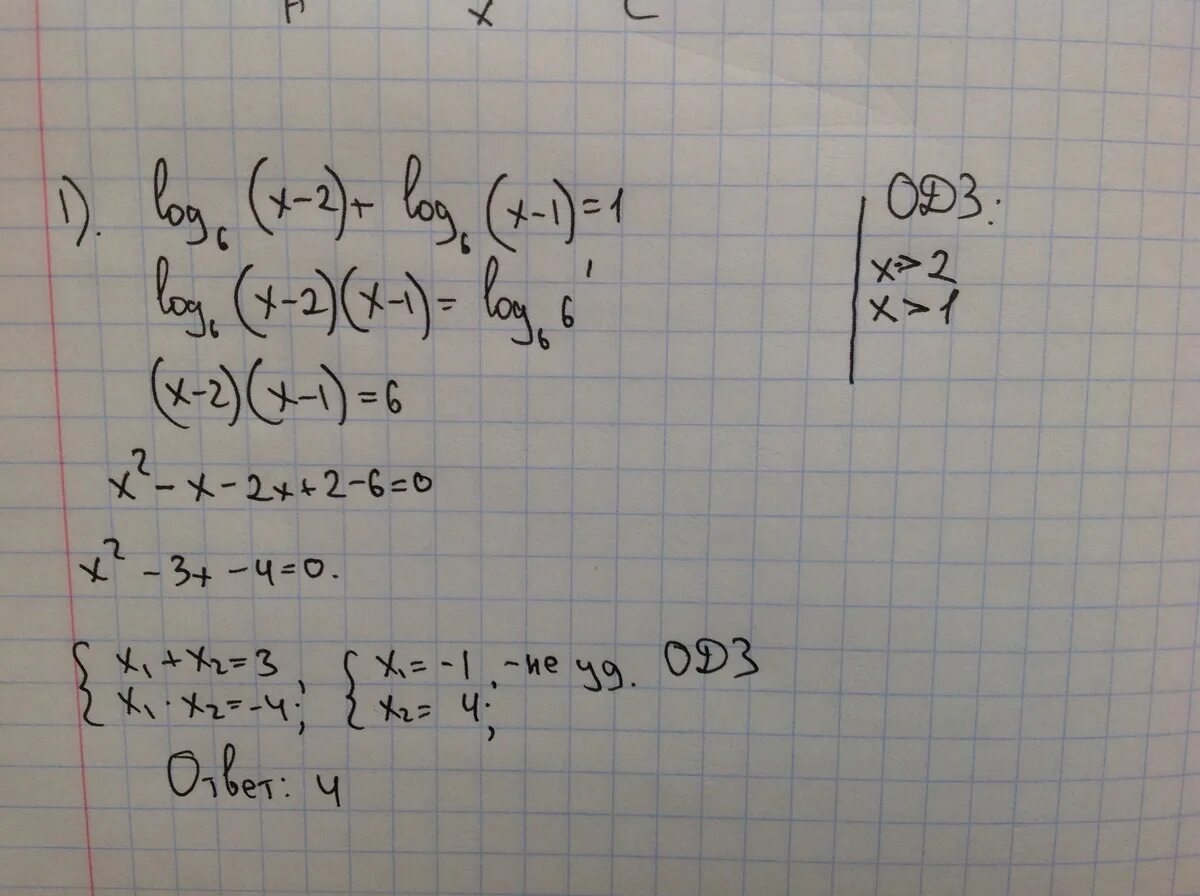 1). log₆(x-2)+ log₆(x-1)=1
log₆(x-2)(x-1)= log₆6¹
(x-2)(x-1)=6
x²-x-2x+2-6=0
x²-3x-4=0.
{x₁+x₂=3 {x₁=-1, -не уд. ОДЗ
x₁·x₂=-4; x₂= 4;
Ответ: 4
ОДЗ:
x>2
x>1